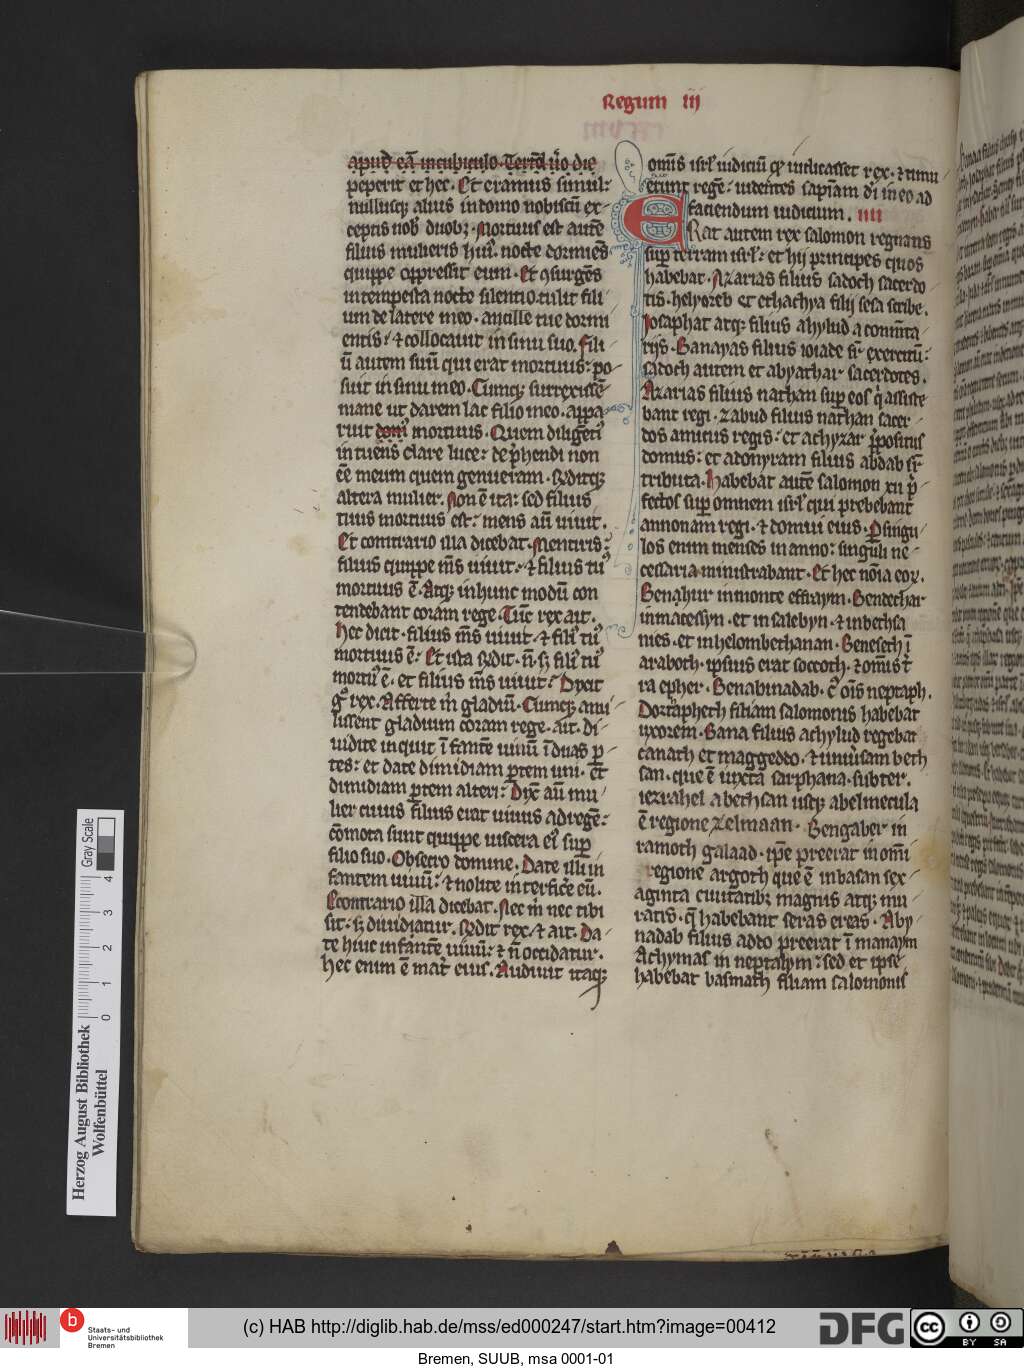 Regum iij
apud eā incubiculo. Tercia ṽo die
peperit et hec. Et eramus simul:
nullusqꝫ alius in domo nobiscū ex
ceptis nob duobꝫ. Mortuus est autē
filius mulieris hui᷒. nocte dormiēs
quippe oppressit eum. Et ꝯsurgēs
intempesta nocte silentio. tulit fili
um de latere meo. ancille tue dormi
entis: et collocauit in sinu suo. fili
ū autem suū qui erat mortuus: po
suit in sinu meo. Cumqꝫ surrexissē
mane ut darem lac filio meo. appa
ruit mortuus. Quem diligēti᷒
intuens clare luce: dep̄hendi non
eē meum quem genueram. Rn̄ditqꝫ
altera mulier. Non ē ita: sed filius
tuus mortuus est: mens aū uiuit.
Et contrario illa dicebat. Mentiris:
filius quippe ms̄ uiuit: et filius tu᷒
mortuus ē. Atqꝫ in hunc modū con
tendebant coram rege. Tūc rex ait.
Hec dicit. filius ms̄ uiuit. et fili᷒ tu᷒
mortuus ē: Et ista rn̄dit. n̄. sꝫ fili᷒ tu᷒
mortu᷒ ē. et filius ms̄ uiuit: Dixit
gͦ rex. Afferte m̄ gladiū. Cumqꝫ attu
lissent gladium coram rege. ait. Di
uidite inquit ī fantē uiuū ī duas p
tes: et date dimidiam ꝑtem uni. et
dimidiam ꝑtem alteri: Dix̄ aū mu
lier cuius filius erat uiuus ad regē:
cōmota sunt quippe uiscera ei᷒ sup
filio suo. Obsecro domine. Date illi in
fantem uiuū: et nolite interficē eū.
Econtrario illa dicebat. Nec m̄ nec tibi
sit. sꝫ diuidatur. Rn̄dit rex et ait. Da
te huic infantē uiuū: et n̄ occidatur.
hec enim ē mat̄ eius. Audiuit itaqꝫ
omīs isrl̄ iudiciū qd̄ iudicasset rex. et timu
erunt regē: uidentes sapiam di in eo ad
faciendum iudicium. IIII
ERat autem rex salomon regnans
sup̄ terram isrl̄: et hij principes quos
habebat. Azarias filius sadoch sacerdo
tis. helyoreb et ethachya filij sesa scribe.
Iosaphat atqꝫ filius ahylud a comīta
rijs. Banayas filius ioiade sr̄ exercitū:
sadoch autem et abyathar sacerdotes.
Azarias filius nathan sup eos q̄ assiste
bant regi. Zabud filius nathan sacer
dos amicus regis: et achyzar p̄positus
domus: et adonyram filius abdab sr̄
tributa. Habebat autē salomon xii p̄
fectos sup omnem isrl̄ qui prebebant
annonam regi. et domui eius. Ꝑ singu
los enim menses in anno: singuli ne
cessaria ministrabant. Et hec noīa eoꝝ.
Benahur in monte effraym. Bendechar
in macessyn. et in salebyn. et in bethsa
mes. et in helombethanan. Beneseth ī
araboth. ipsius erat soccoth. et omīs t̄
ra epher. Benabinadab. c᷒ oīs neptaph.
Dortapheth filiam salomonis habebat
uxorem. Bana filius achylud regebat
canath et maggeddo. et uniūsam beth
san. que ē iuxta sarphana. subter.
iezrahel a bethsan usqꝫ abelmecula
ē regione zelmaan. Bengaber in
ramoth galaad. ip̄e preerat in omī
regione argoth que ē in basan sex
aginta ciuitatibꝫ magnis atqꝫ mu
ratis. q̄ habebant seras ereas. Aby
nadab filius addo preerat ī manaym
Achymas in neptalym: sed et ipse
habebat basmath filiam salomonis
Gray Scale
0 1 2 3 4
Herzog August Bibliothek
Wolfenbüttel
b
Staats- und
Universitätsbibliothek
Bremen
(c) HAB http://diglib.hab.de/mss/ed000247/start.htm?image=00412
DFG
cc BY SA
Bremen, SUUB, msa 0001-01